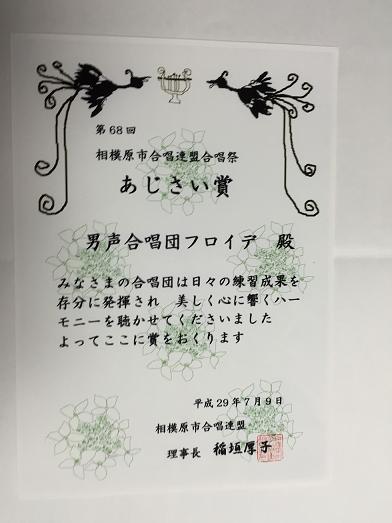 第68回
相模原市合唱連盟合唱祭
あじさい賞
男声合唱団フロイデ 殿
みなさまの合唱団は日々の練習成果を
存分に発揮され 美しく心に響くハー
モニーを聴かせてくださいました
よってここに賞をおくります
平成29年7月9日
相模原市合唱連盟
理事長 稲垣厚子